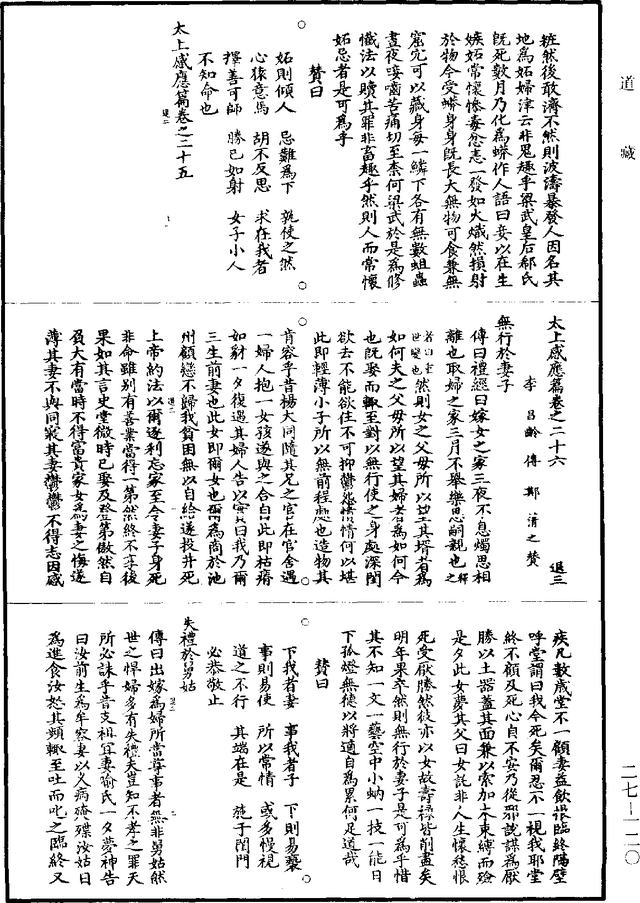 道藏
粧然後敢濟不然則波濤暴發人因名其
地為妬婦津云非鬼趣乎梁武皇后郗氏
既死數月乃化為蟒作人語曰妾以在生
嫉妬常懷慘毒愈恚一發如火熾然損射
於物今受蟒身身既長大無物可食兼無
窟穴可以藏身每一鱗下各有無數蛆蟲
晝夜唼嚙苦痛切至柰何梁武於是為修
懺法以贖其罪非畜趣乎然則人而常懷
妬忌者是可為乎
贊曰
妬則傾人 忌難為下 孰使之然
心猿意馬 胡不反思 求在我者
擇善可師 勝己如射 女子小人
不知命也
太上感應篇卷之二十五
太上感應篇卷之二十六 退三
李昌齡傳 鄭清之贊
無行於妻子
傳曰禮經曰嫁女之家三夜不息燭思相
離也取婦之家三月不舉樂思嗣親也釋之
者曰重世變也然則女之父母所以望其壻者為
如何夫之父母所以望其婦者為如何今
也既娶而輒至對以無行使之身處深閨
欲去不能欲住不可抑鬱愁憤情何以堪
此即輕薄小子所以無前程應也造物其
肯容乎昔楊大同隨其兄之官在官舍遇
一婦人抱一女孩遂與之合自此即枯瘠
如豺一夕復遇其婦人告以實曰我乃爾
三生前妻也此女即爾女也爾為商於池
州顧戀不歸我貧困無以自給遂投井死
上帝約法以爾逐利忘家至令妻子身死
非命雖別有善業當得一第然終不享後
果如其言史堂微時已娶及登第傲然自
負大有當時不得富貴家女為妻之悔遂
薄其妻不與同寢其妻鬱鬱不得志因感
疾凡數歲堂不一顧妻益飲恨臨終隔壁
呼堂謂曰我今死矣爾忍不一視我耶堂
終不顧及死心自不安乃從邪說謀為厭
勝以土器蓋其面兼以索加土束縛而殮
是夕此女夢其父曰女託非人生懷愁恨
死受厭勝然彼亦以女故壽祿皆削盡矣
明年果卒然則無行於妻子是可為乎惜
其不知一文一藝空中小蚋一技一能日
下孤燈無德以將適自為累何足道哉
贊曰
下我者妻 事我者子 下則易褻
事則易使 所以常情 或多慢視
道之不行 其端在是 施于閨門
必恭敬止
失禮於舅姑
傳曰出嫁為婦所當尊事者無非舅姑然
世之悍婦多有失禮夫豈知不孝之罪天
所必誅乎昔支祖宜妻喻氏一夕夢神告
曰汝前生為牟容妻以义病旛殜汝姑日
為進食汝怒其頻輒至吐而叱之臨終又
二七－一二〇